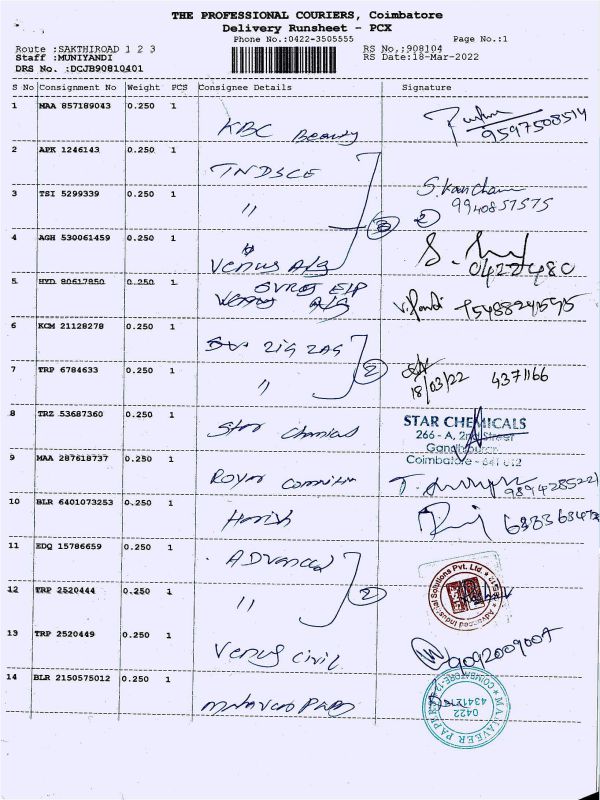 THE PROFESSIONAL COURIERS, Coimbatore
Delivery Runsheet - PCX
Phone No.:0422-3505555 Page No.:1
Route :SAKTHIROAD 1 2 3 RS No,;908104
Staff :MUNIYANDI RS Date:18-Mar-2022
DRS No. :DCJB90810401
S No Consignment No Weight PCS Consignee Details Signature
1 MAA 857189043 0.250 1 KBC Beauty 9597508514
2 APK 1246143 0.250 1 TNDSCE
3 TSI 5299339 0.250 1 " 3 2 9940857575
4 AGH 530061459 0.250 1 Venus A/G 0422480
5 HYD 80617850 0.250 1
6 KCM 21128278 0.250 1 ZIG ZAG
7 TRP 6784633 0.250 1 " 2 18/03/22 4371166
8 TRZ 53687360 0.250 1 Star Chemicals STAR CHEMICALS
266 - A, 2nd Street
Coimbatore - 641 012
9 MAA 287618737 0.250 1 Royal
10 BLR 6401073253 0.250 1 Harish
11 EDQ 15786659 0.250 1 ADvanced
12 TRP 2520444 0.250 1 " 2 Advanced Industrial Solutions Pvt. Ltd.
13 TRP 2520449 0.250 1 Venus civil 9092009007
14 BLR 2150575012 0.250 1 MAHAVEER PAPERS COIMBATORE-12 0422